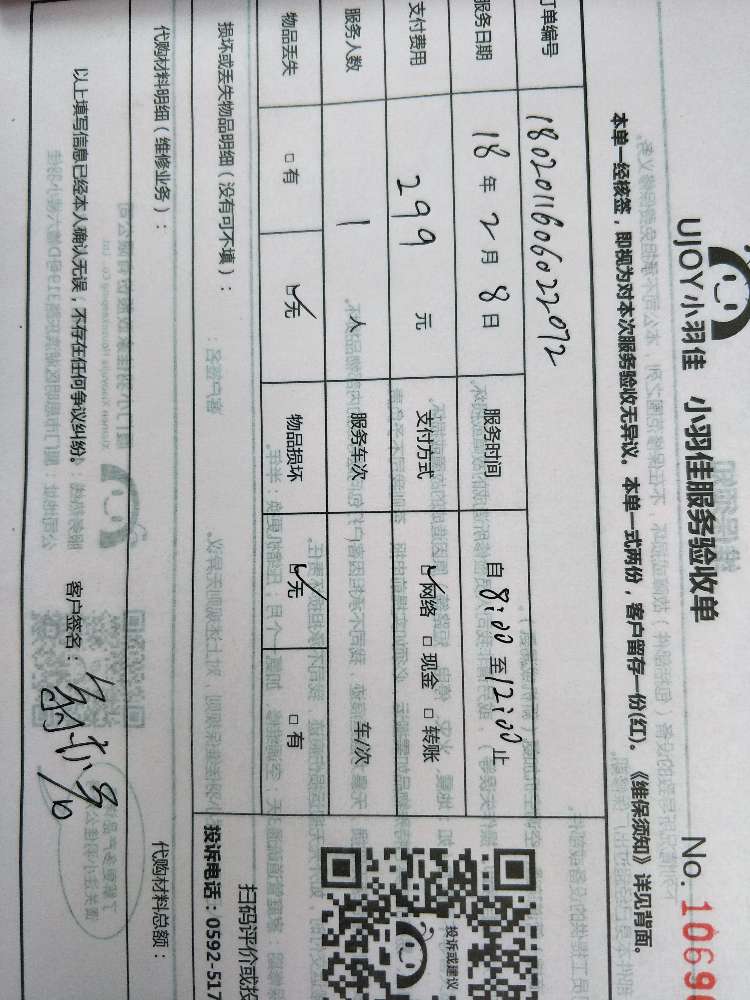 UJOY小羽佳 小羽佳服务验收单 No. 1069
本单一经核签，即视为对本次服务验收无异议。本单一式两份，客户留存一份(红)。《维保须知》详见背面。
订单编号 180201160602072
服务日期 18 年 2 月 8 日 服务时间 自 8:00 至 12:00 止
支付费用 299 元 支付方式 ☑网络 □现金 □转账
服务人数 1 人 服务车次 车/次
物品丢失 □有 ☑无 物品损坏 ☑无 □有
损坏或丢失物品明细（没有可不填）：
投诉或建议
扫码评价或投
投诉电话：0592-517
代购材料明细（维修业务）： 代购材料总额：
以上填写信息已经本人确认无误，不存在任何争议纠纷。 客户签名：